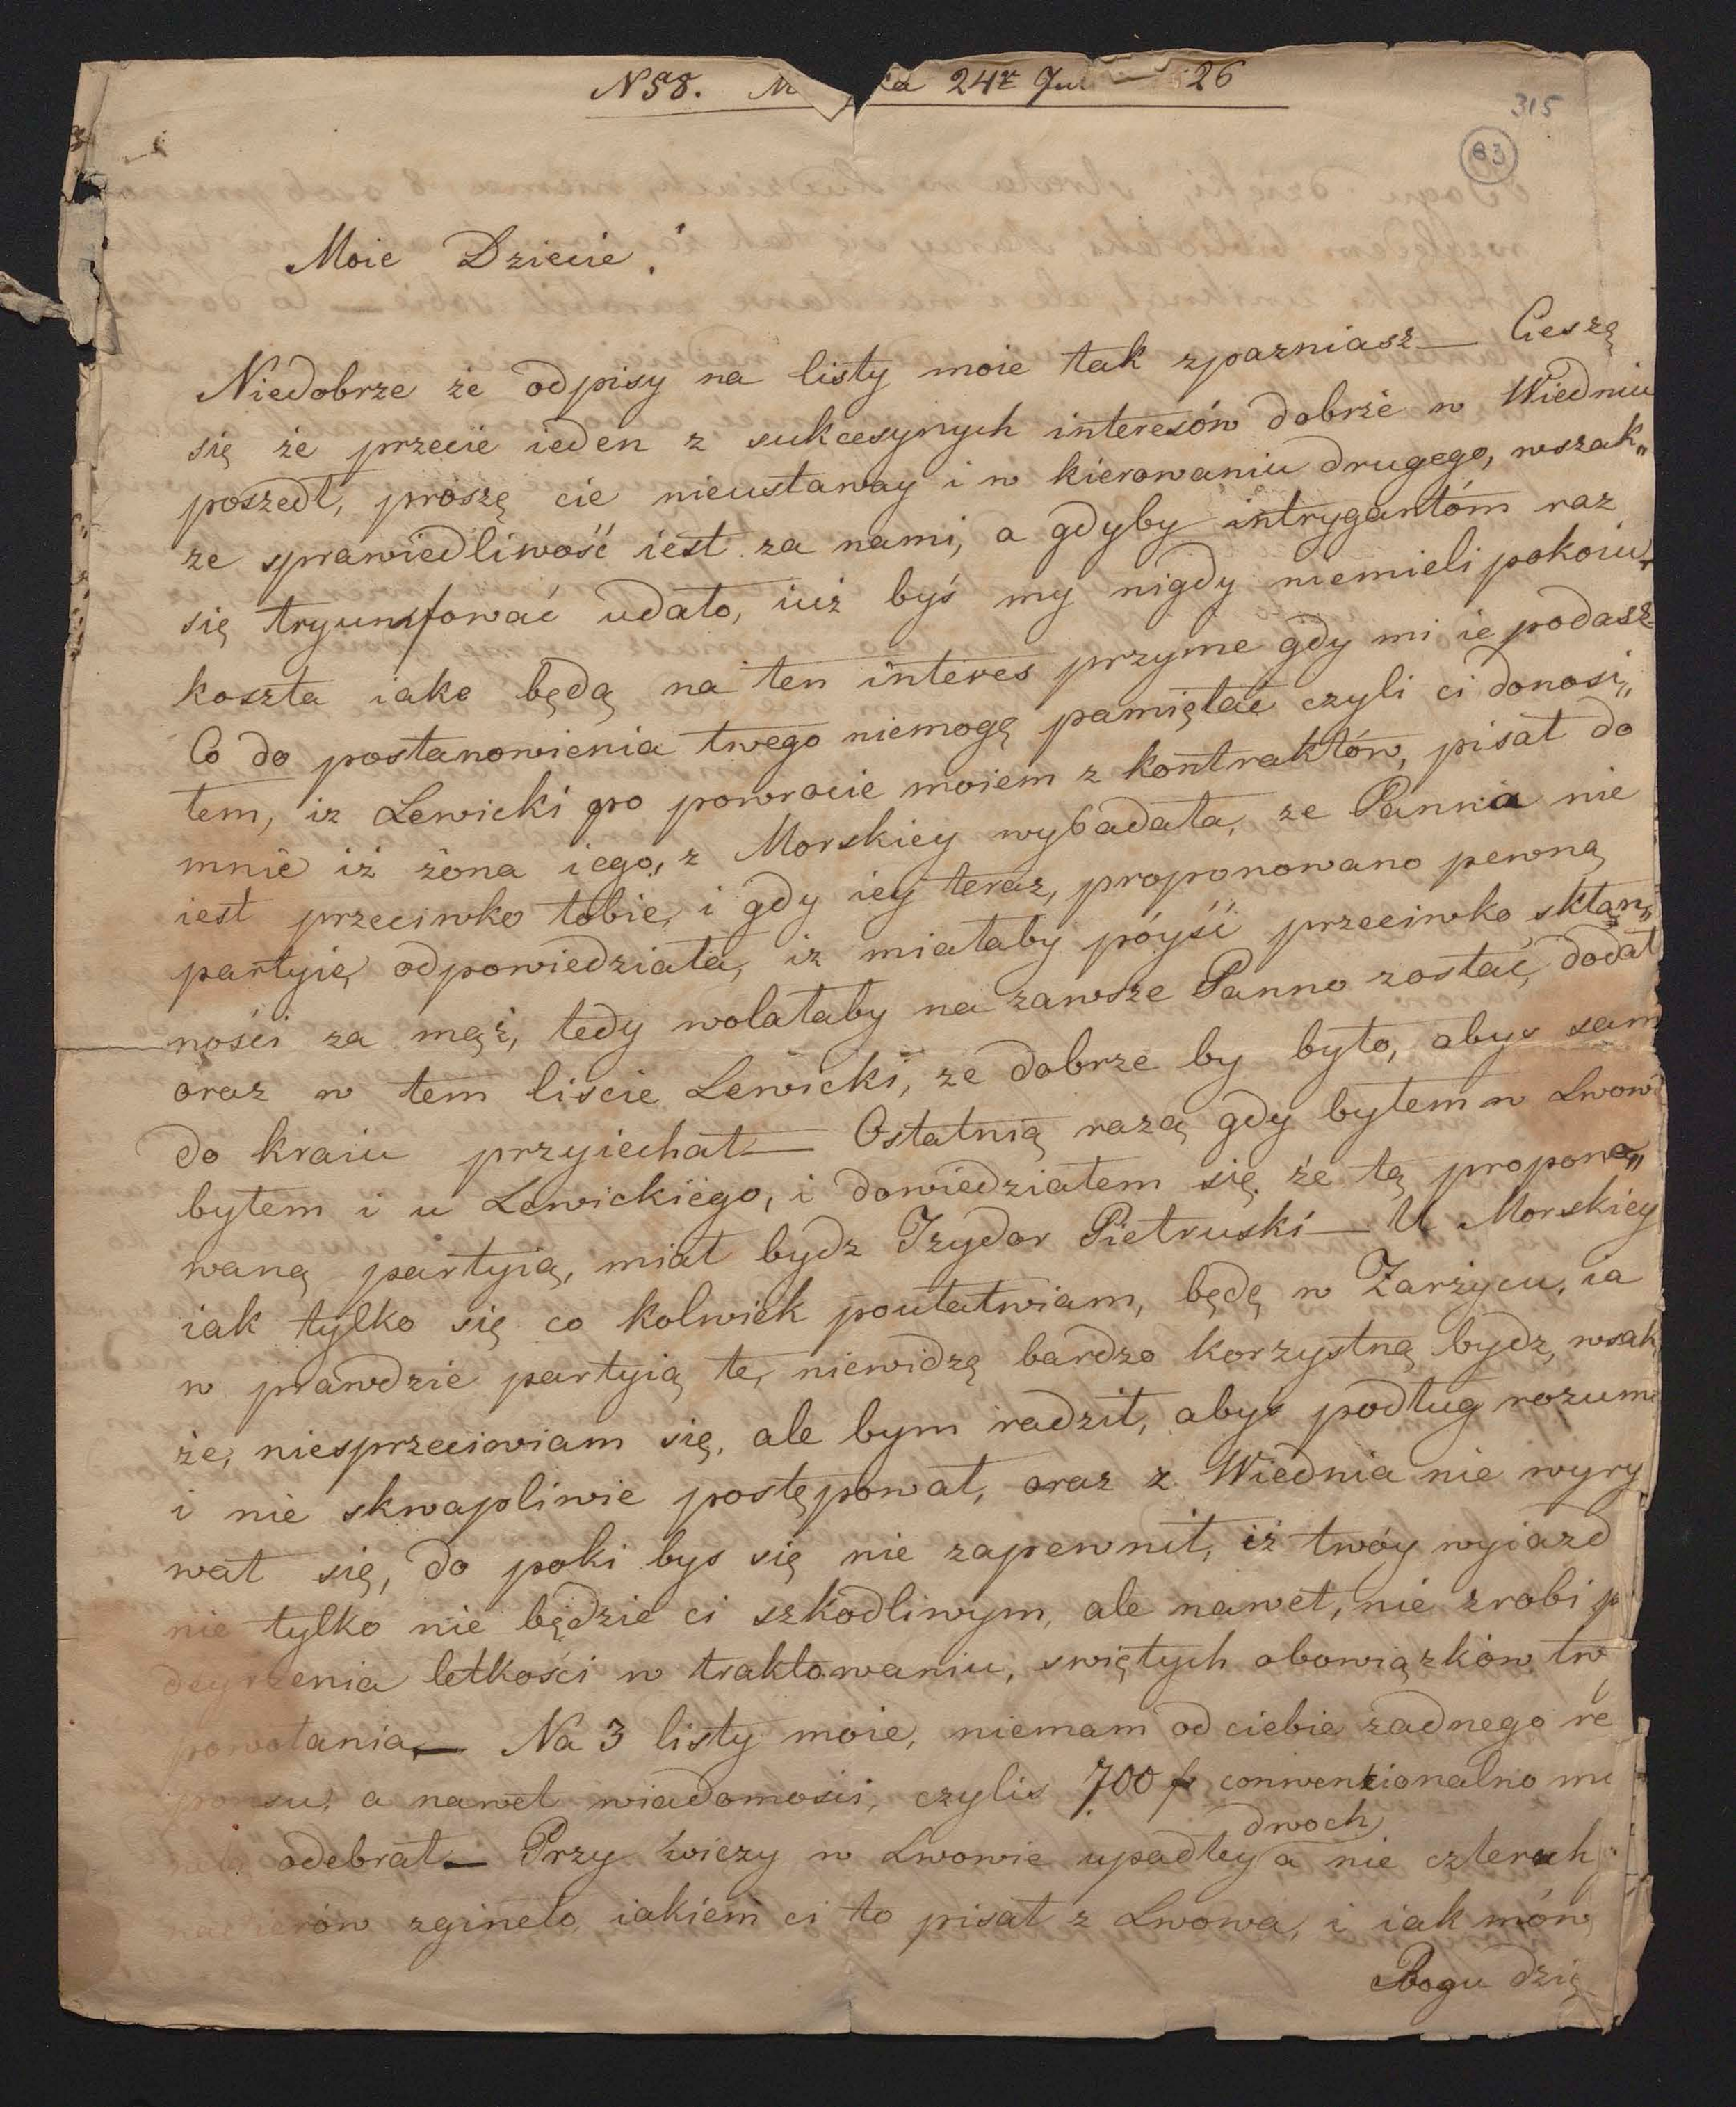 N58. M ka 24r Ju — 26
315
83
Moie Dziecie!
Niedobrze że odpisy na listy moie tak zpazniasz — Cieszę
się że przecie ieden z sukcesynych interesów dobrże w Wiedniu
poszedł, proszę cie nieustaway i w kierowaniu drugego, wszak„
ze sprawiedliwość iest za nami, a gdyby intrygantóm raz
się tryumfować udało, iuż byś my nigdy niemieli pokoiu,
koszta iake będą na ten interes przyme gdy mi ie podasz
Co do postanowienia twego niemogę pamiętać czyli ci donosi„
łem, iz Lewicki po powrocie moiem z kontraktów, pisał do
mnie iż żona iego, z Morskiey wybadała, ze Panna nie
iest przeciwko tobie, i gdy iey teraz, proponowano pewną
partyię odpowiedziała, iz miałaby póyść przeciwko skłon„
ności za mąż, tedy wolałaby na zawsze Panno zostać, dodał
oraz w tem liscie Lewicki, ze dobrze by było, abys sam
do kraiu przyiechał — Ostatnią razą gdy byłem w Lwow
byłem i u Lewickiego, i dowiedziałem się że tą propono„
waną partyią, miał bydz Izydor Pietruski — U Morskiey
iak tylko się co kolwiek poułatwiam, będę w Zarżycu, ia
w prawdzie partyią te, niewidzę bardzo korzystną bydz, wsak
że, niesprzeciwiam się, ale bym radził, abys podług rozum
i nie skwapliwie postępował, oraz z Wiednia nie wyry
wał się, do poki bys się nie zapewnił, iż twóy wyiazd
nie tylko nie będzie ci szkodliwym, ale nawet, nie zrobi p
deyrzenia letkości w traktowaniu, swiętych obowiązków tw
powołania — Na 3 listy moie, niemam od ciebie żadnego re
ponsu, a nawet wiadomosci, czylis 700 f conwenzionalno mo
odebrał — Przy wiezy w Lwowie upadłey dwoch a nie czterech
zgineło, iakiem ci to pisał z Lwowa, i iak mów
Bogu dzię